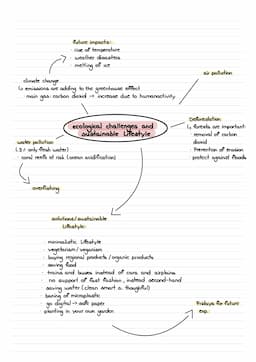 future impacts:
· rise of temperature
· weather disasters
· melting of ice
climate change
↳ emissions are adding to the greenhouse effect
· main gas: carbon dioxid → increase due to humanactivity
air pollution
ecological challenges and
sustainable lifestyle
Deforestation
↳ forests are important:
· removal of carbon
dioxid
· Prevention of erosion
protect against floods
water pollution
(3% only fresh water)
· coral reefs at risk (ocean acidification)
overfishing
solutions/sustainable
lifestyle:
· minimalistic lifestyle
· vegetarian/veganism
· buying regional products/organic products
· saving food
· trains and buses instead of cars and airplains
· no support of fast fashion, instead second-hand
· saving water (clean smart & thoughtful)
· baning of microplastic
· go digital → safe paper
· planting in your own garden
Fridays for future
exp.